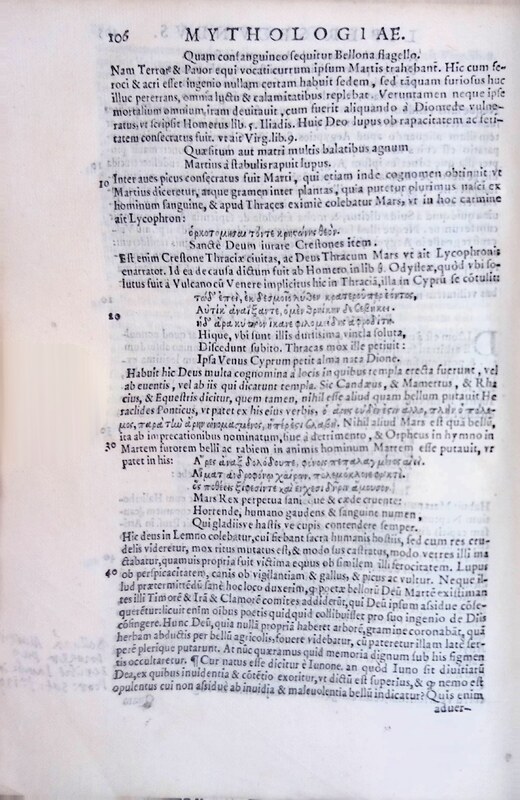 106 MYTHOLOGIAE.
Quam consanguineo sequitur Bellona flagello.
Nam Terror & Pavor equi vocati currum ipsum Martis trahebant. Hic cum fe-
roci & acri esset ingenio nullam certam habuit sedem, sed tãquam furiosus huc
illuc pererrans, omnia luctu & calamitatibus replebat. Veruntamen neque ipse
mortalium omnium, iram deuitauit, cum fuerit aliquando à Diomede vulne-
ratus, vt scripsit Homerus lib. 5. Iliadis. Huic Deo lupus ob rapacitatem ac feri-
tatem consecratus fuit. vt ait Virg. lib. 9.
Quæsitum aut matri multis balatibus agnum
Martius à stabulis rapuit lupus.
Inter aues picus consecratus fuit Marti, qui etiam inde cognomen obtinuit vt
10 Martius diceretur, atque gramen inter plantas, quia putetur plurimus nasci ex
hominum sanguine, & apud Thraces eximiè colebatur Mars, vt in hoc carmine
ait Lycophron:
Sancte Deum iurare Crestones item.
Est enim Crestone Thraciæ ciuitas, ac Deus Thracum Mars vt ait Lycophronis
enarrator. Id ea de causa dictum fuit ab Homero in lib 8. Odysseæ, quòd vbi so-
lutus fuit à Vulcano cũ Venere implicitus hic in Thraciã, illa in Cyprũ se cõtulit:
20
Hique, vbi sunt illis durissima vincla soluta,
Discedunt subito. Thracas mox ille petiuit:
Ipsa Venus Cyprum petit alma nata Dione.
Habuit hic Deus multa cognomina à locis in quibus templa erecta fuerunt, vel
ab euentis, vel ab iis qui dicarunt templa. Sic Candæus, & Mamertus, & Rha
cius, & Equestris dicitur, quem tamen, nihil esse aliud quam bellum putauit He
raclides Ponticus, vt patet ex his eius verbis,
Nihil aliud Mars est quã bellũ,
ita ab imprecationibus nominatum, siue à detrimento, & Orpheus in hymno in
30 Martem furorem belli ac rabiem in animis hominum Martem esse putauit, vt
patet in his:
Mars Rex perpetua & cæde cruente:
Horrende, humano gaudens & sanguine numen,
Qui gladiisve hastis ve cupis contendere semper.
Hic deus in Lemno colebatur, cui fiebant sacra humanis hostiis, sed cum res cru-
delis videretur, mox ritus mutatus est, & modo sus castratus, modo verres illi ma
ctabatur, quamuis propria fuit victima equus ob similem illi ferocitatem. Lupus
40 ob perspicacitatem, canis ob vigilantiam & gallus, & picus ac vultur. Neque il-
lud prætermittẽdũ sanè hoc loco duxerim, q̃ poetæ bellorũ Deũ Martẽ existiman
tes illi Timorẽ & Irã & Clamorẽ comites addiderũt, qui Deũ ipsum assidue cõse-
querẽtur: licuit enim oĩbus poetis quidquid collibuisset pro suo ingenio de Diis
cõfingere. Hunc Deũ, quia nulla propriã haberet arborẽ, gramine coronabãt, quã
herbam abductis per bellũ agricolis, fouere videbatur, cũ pateretur illam latè ser-
pere plerique putarunt. At nũc quæramus quid memoria dignum sub his figmen
tis occultaretur. ¶ Cur natus esse dicitur è Iunone. an quòd Iuno sit diuitiarũ
Dea, ex quibus inuidentia & cõtẽtio exoritur, vt dictũ est superius, & q̃ nemo est
opulentus cui non assidue ab inuidia & maleuolentia bellũ indicatur? Quis enim
aduer-